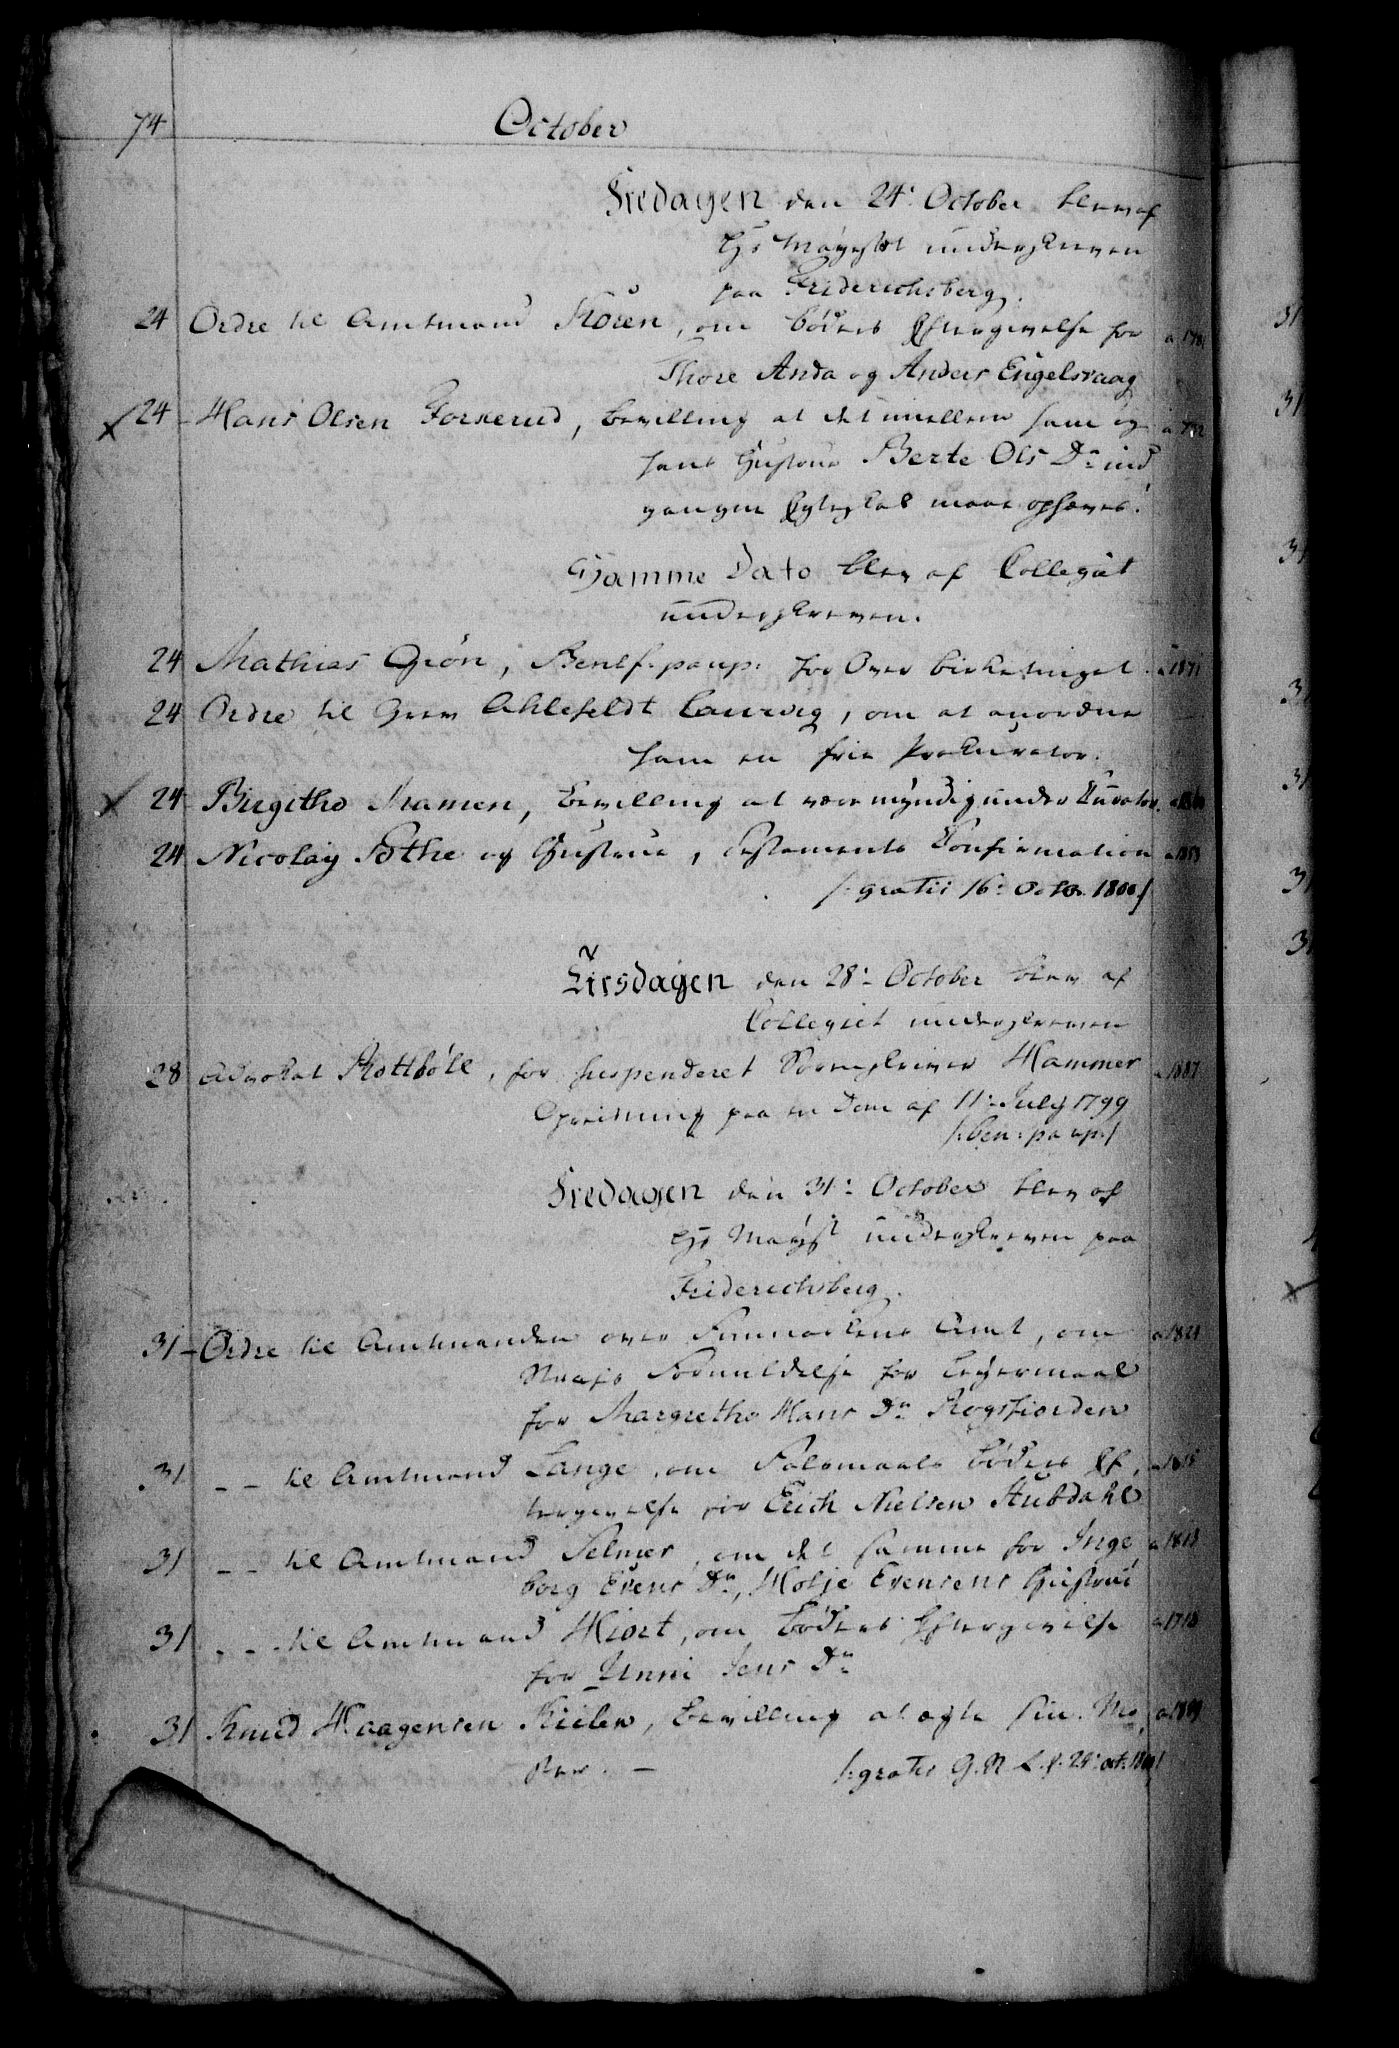 74 October
Fredagen den 24: October blev af
Hs Mayestet underskreven
paa Friderichsberg.
24 Ordre til Amtmand Koren, om Böders Eftergivelse for
Thore Anda og Anders Engelsvaag
24 - Hans Olsen Forkerud, Bevilling at det imellem ham og
hans Hustrue Berte Ols Dr ind
gangne Egteskab maae ophæves.
Samme Dato blev af Collegiet
underskreven.
24 Mathias Grön, Benef: paup: for Over Birketinget a 1871
24 Ordre til Grev Ahlefeldt Laurvig, om at anordne
ham en frie Prokurator.
24 Birgithe Kramen, Bevilling at være myndig under Curator.
24 Nicolay Töthe og Hustrue, Testaments Confirmation
/: gratis 16: Octbr. 1800 /
Tirsdagen den 28: October blev af
Collegiet underskreven
28 Advokat Rottböll, for suspenderet Sorenskriver Hammer a 1887
Opreisning paa en Dom af 11: July 1799
/: ben: paup: /
Fredagen den 31: October blev af
Hs Mayst underskreven paa
Friderichsberg.
31 - Ordre til Amtmanden over Finmarkens Amt, om a 1821
Straffs Formildelse for Leyermaal
for Margrethe Hans Dr Rogsfiorden
31 - - til Amtmand Lange, om Falsmaals Böders Ef,
tergivelse for Erich Nielsen Stubdahl
31 - - til Amtmand Selmer, om det samme for Inge
borg Evens Dr, Holje Evensens Hustrue
31 - - til Amtmand Hiort, om Böders Eftergivelse
for Unni Jens Dr
31 Knud Haagensen Kiilen, Bevilling at ægte sin Mo,
ster. - /: gratis G. R L. f. 29: oct: 1800 /